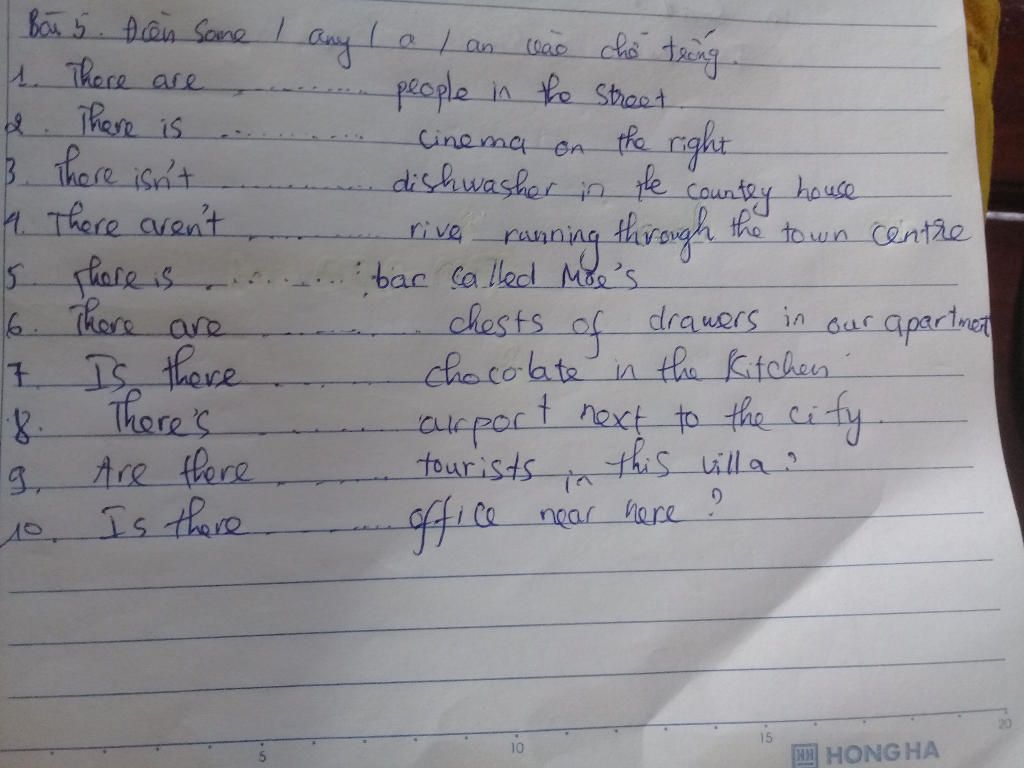 Bài 5. Điền Some / any / a / an vào chỗ trống.
1. There are ............. people in the street
2. There is ............. cinema on the right
3. There isn't ............. dishwasher in the country house
4. There aren't ............. rive running through the town centre
5. There is ............. bar called Moe's
6. There are ............. chests of drawers in our apartment
7. Is there ............. chocolate in the kitchen
8. There's ............. airport next to the city.
9. Are there ............. tourists in this villa?
10. Is there ............. office near here?
5 10 15 20
HONG HA